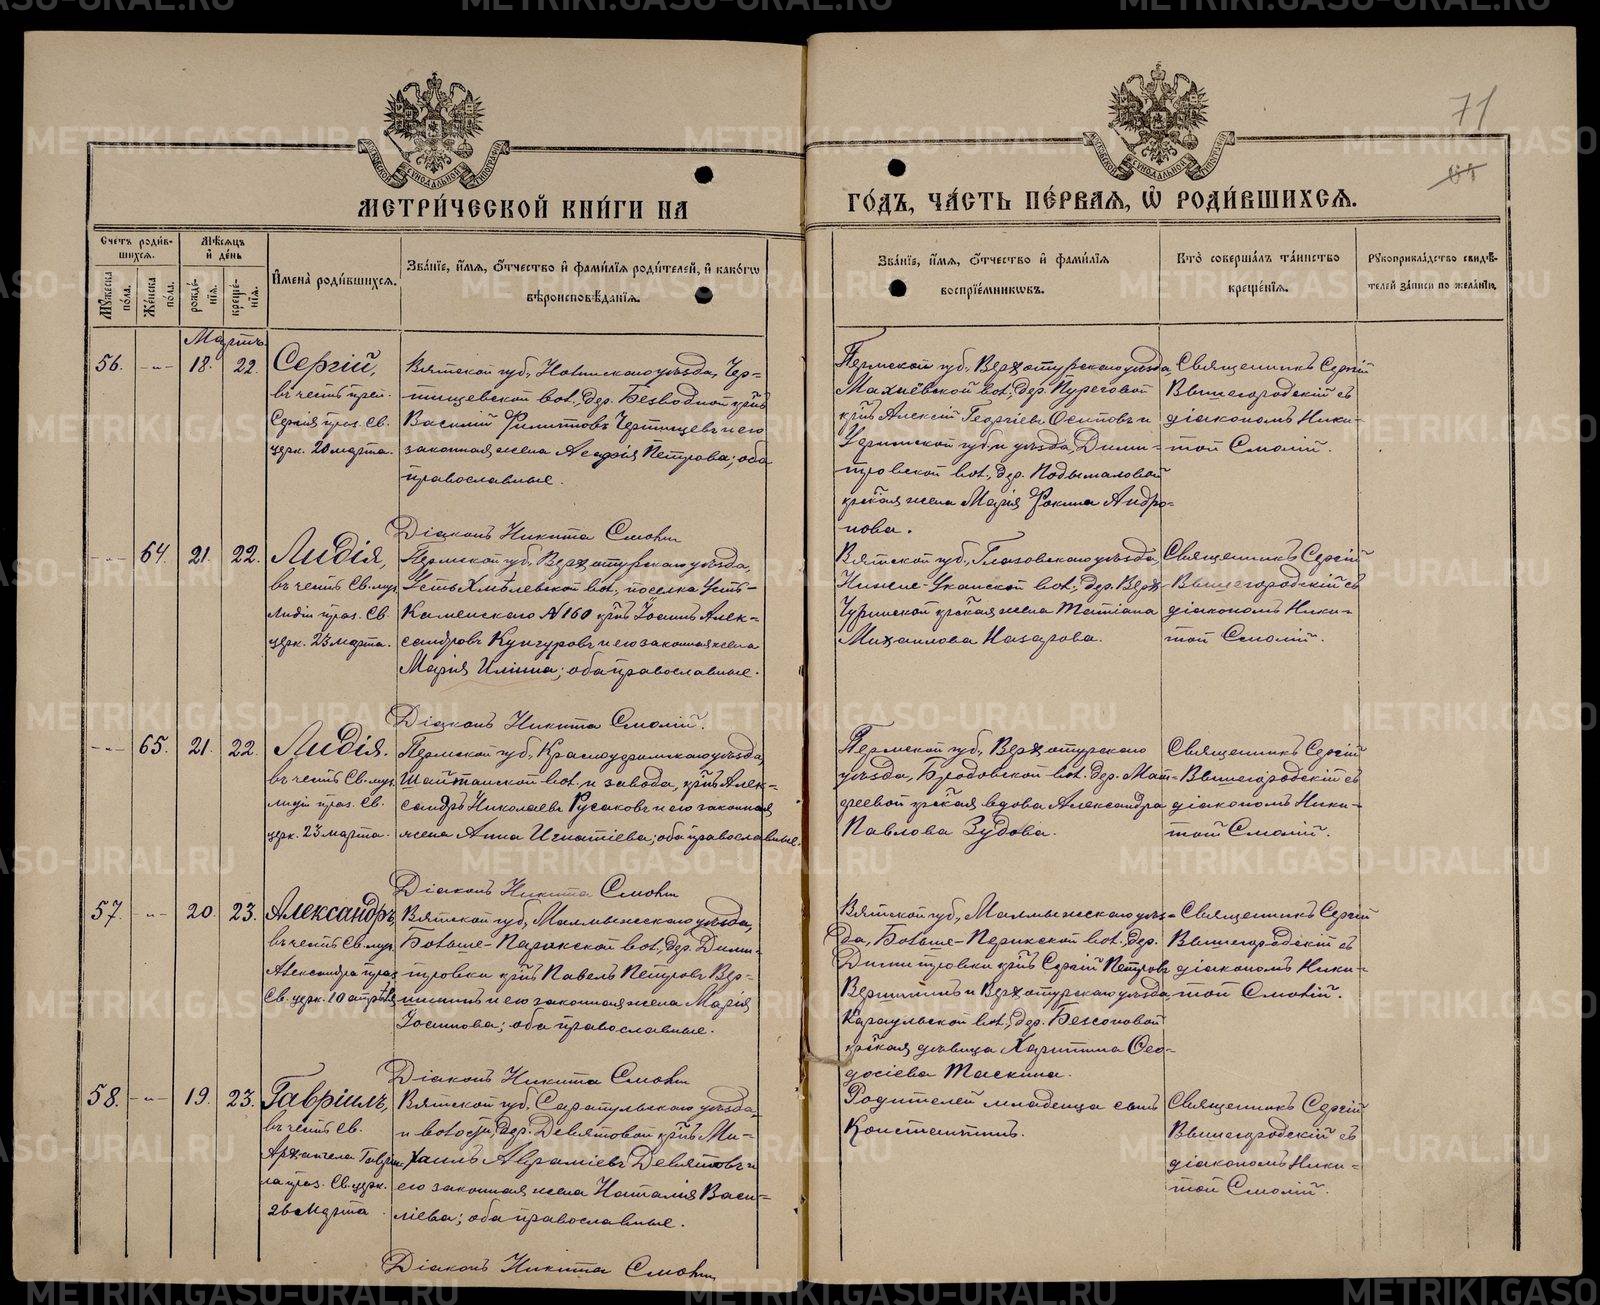 71
МЕТРИ́ЧЕСКОЙ КНИ́ГИ НА
ГО́ДЪ, ЧА́СТЬ ПЕ́РВАѦ, Ѽ РОДИ́ВШИХСѦ.
Сче́тъ роди́вшихсѧ.
Мꙋ́жеска по́ла.
Же́нска по́ла.
Мѣ́сѧцъ и҆ де́нь
рожде́нїѧ.
креще́нїѧ.
И҆мена̀ роди́вшихсѧ.
Зва́нїе, и҆́мѧ, ѻ҆́тчество и҆ фами́лїѧ роди́телей, и҆ како́гѡ
вѣроисповѣ́данїѧ.
Зва́нїе, и҆́мѧ, ѻ҆́тчество и҆ фами́лїѧ
воспрїе́мникѡвъ.
Кто̀ соверша́лъ та́инство
креще́нїѧ.
Рꙋкоприкла́дство свидѣ́-
телей за́писи по жела́нїю.
Мартъ
56.
18.
22.
Сергій,
въ честь преп.
Сергія праз. св.
церк. 20 марта.
Вятской губ.,
вол., дер. Безводной кр̃нъ
Василій Филиповъ и его
законная жена Петрова; оба
православные.
Діаконъ Никита Смолин
Пермской губ., Верхотурскаго уѣзда,
Махнёвской вол., дер.
кр̃нъ Алексій Георгіевъ Осиповъ и
Уфимской губ. и уѣзда, Дими-
тровской вол., дер. Подымаловой
кр̃ская жена Марія Фокина Андро-
нова.
Священникъ Сергій
Вышегородскій съ
діакономъ Ники-
той Смолин.
64.
21.
22.
Лидія,
въ честь Св. муч.
Лидіи праз. Св.
церк. 23 марта.
Пермской губ., Верхотурскаго уѣзда,
вол., поселка Усть-
Каменскаго №160 кр̃нъ Іоаннъ Алек-
сандровъ Кунгуровъ и его законная жена
Марія Ильина; оба православные.
Діаконъ Никита Смолин.
Вятской губ., Глазовскаго уѣзда,
Нижне-Уканской вол., дер. Верх
кр̃ская жена Татіана
Михаилова Назарова.
Священникъ Сергій
Вышегородскій съ
діакономъ Ники-
той Смолин.
65.
21.
22.
Лидія.
въ честь Св. муч.
Лидіи праз. Св.
церк. 23 марта.
Пермской губ., Красноуфимскаго уѣзда,
Шайтанской вол. и завода, кр̃нъ Алек-
сандръ Николаевъ Русаковъ и его законная
жена Анна Игнатіева; оба православные.
Діаконъ Никита Смолин
Пермской губ., Верхотурскаго
уѣзда, Бродовской вол., дер. Мат-
феевой кр̃ская вдова Александра
Павлова Зудова.
Священникъ Сергій
Вышегородскій съ
діакономъ Ники-
той Смолин.
57.
20.
23.
Александръ,
въ честь Св. муч.
Александра праз.
Св. церк. 10 апрѣля
Вятской губ., Малмыжскаго уѣзда,
вол., дер. Дими-
тровки кр̃нъ Павелъ Петровъ Вер-
шининъ и его законная жена Марія
Іосипова; оба православные.
Діаконъ Никита Смолин
Вятской губ., Малмыжскаго уѣз-
да, вол., дер.
Димитровки кр̃нъ Сергій Петровъ
Вершининъ и Верхотурскаго уѣзда,
Караульской вол., дер. Бессоновой
кр̃ская дѣвица Харитина Ѳео-
досіева Таскина.
Священникъ Сергій
Вышегородскій съ
діакономъ Ники-
той Смолин.
58.
19.
23.
Гавріилъ,
въ честь Св.
Архангела Гавріи-
ла праз. Св. церк.
26 марта.
Вятской губ., Сарапульскаго уѣзда,
и волости, дер. Девятовой кр̃нъ Ми-
хаилъ Авраміевъ Девятовъ и
его законная жена Наталія Васи-
ліева; оба православные.
Діаконъ Никита Смолин
Родителей младенца сынъ
Константинъ.
Священникъ Сергій
Вышегородскій съ
діакономъ Ники-
той Смолин.
METRIKI.GASO-URAL.RU